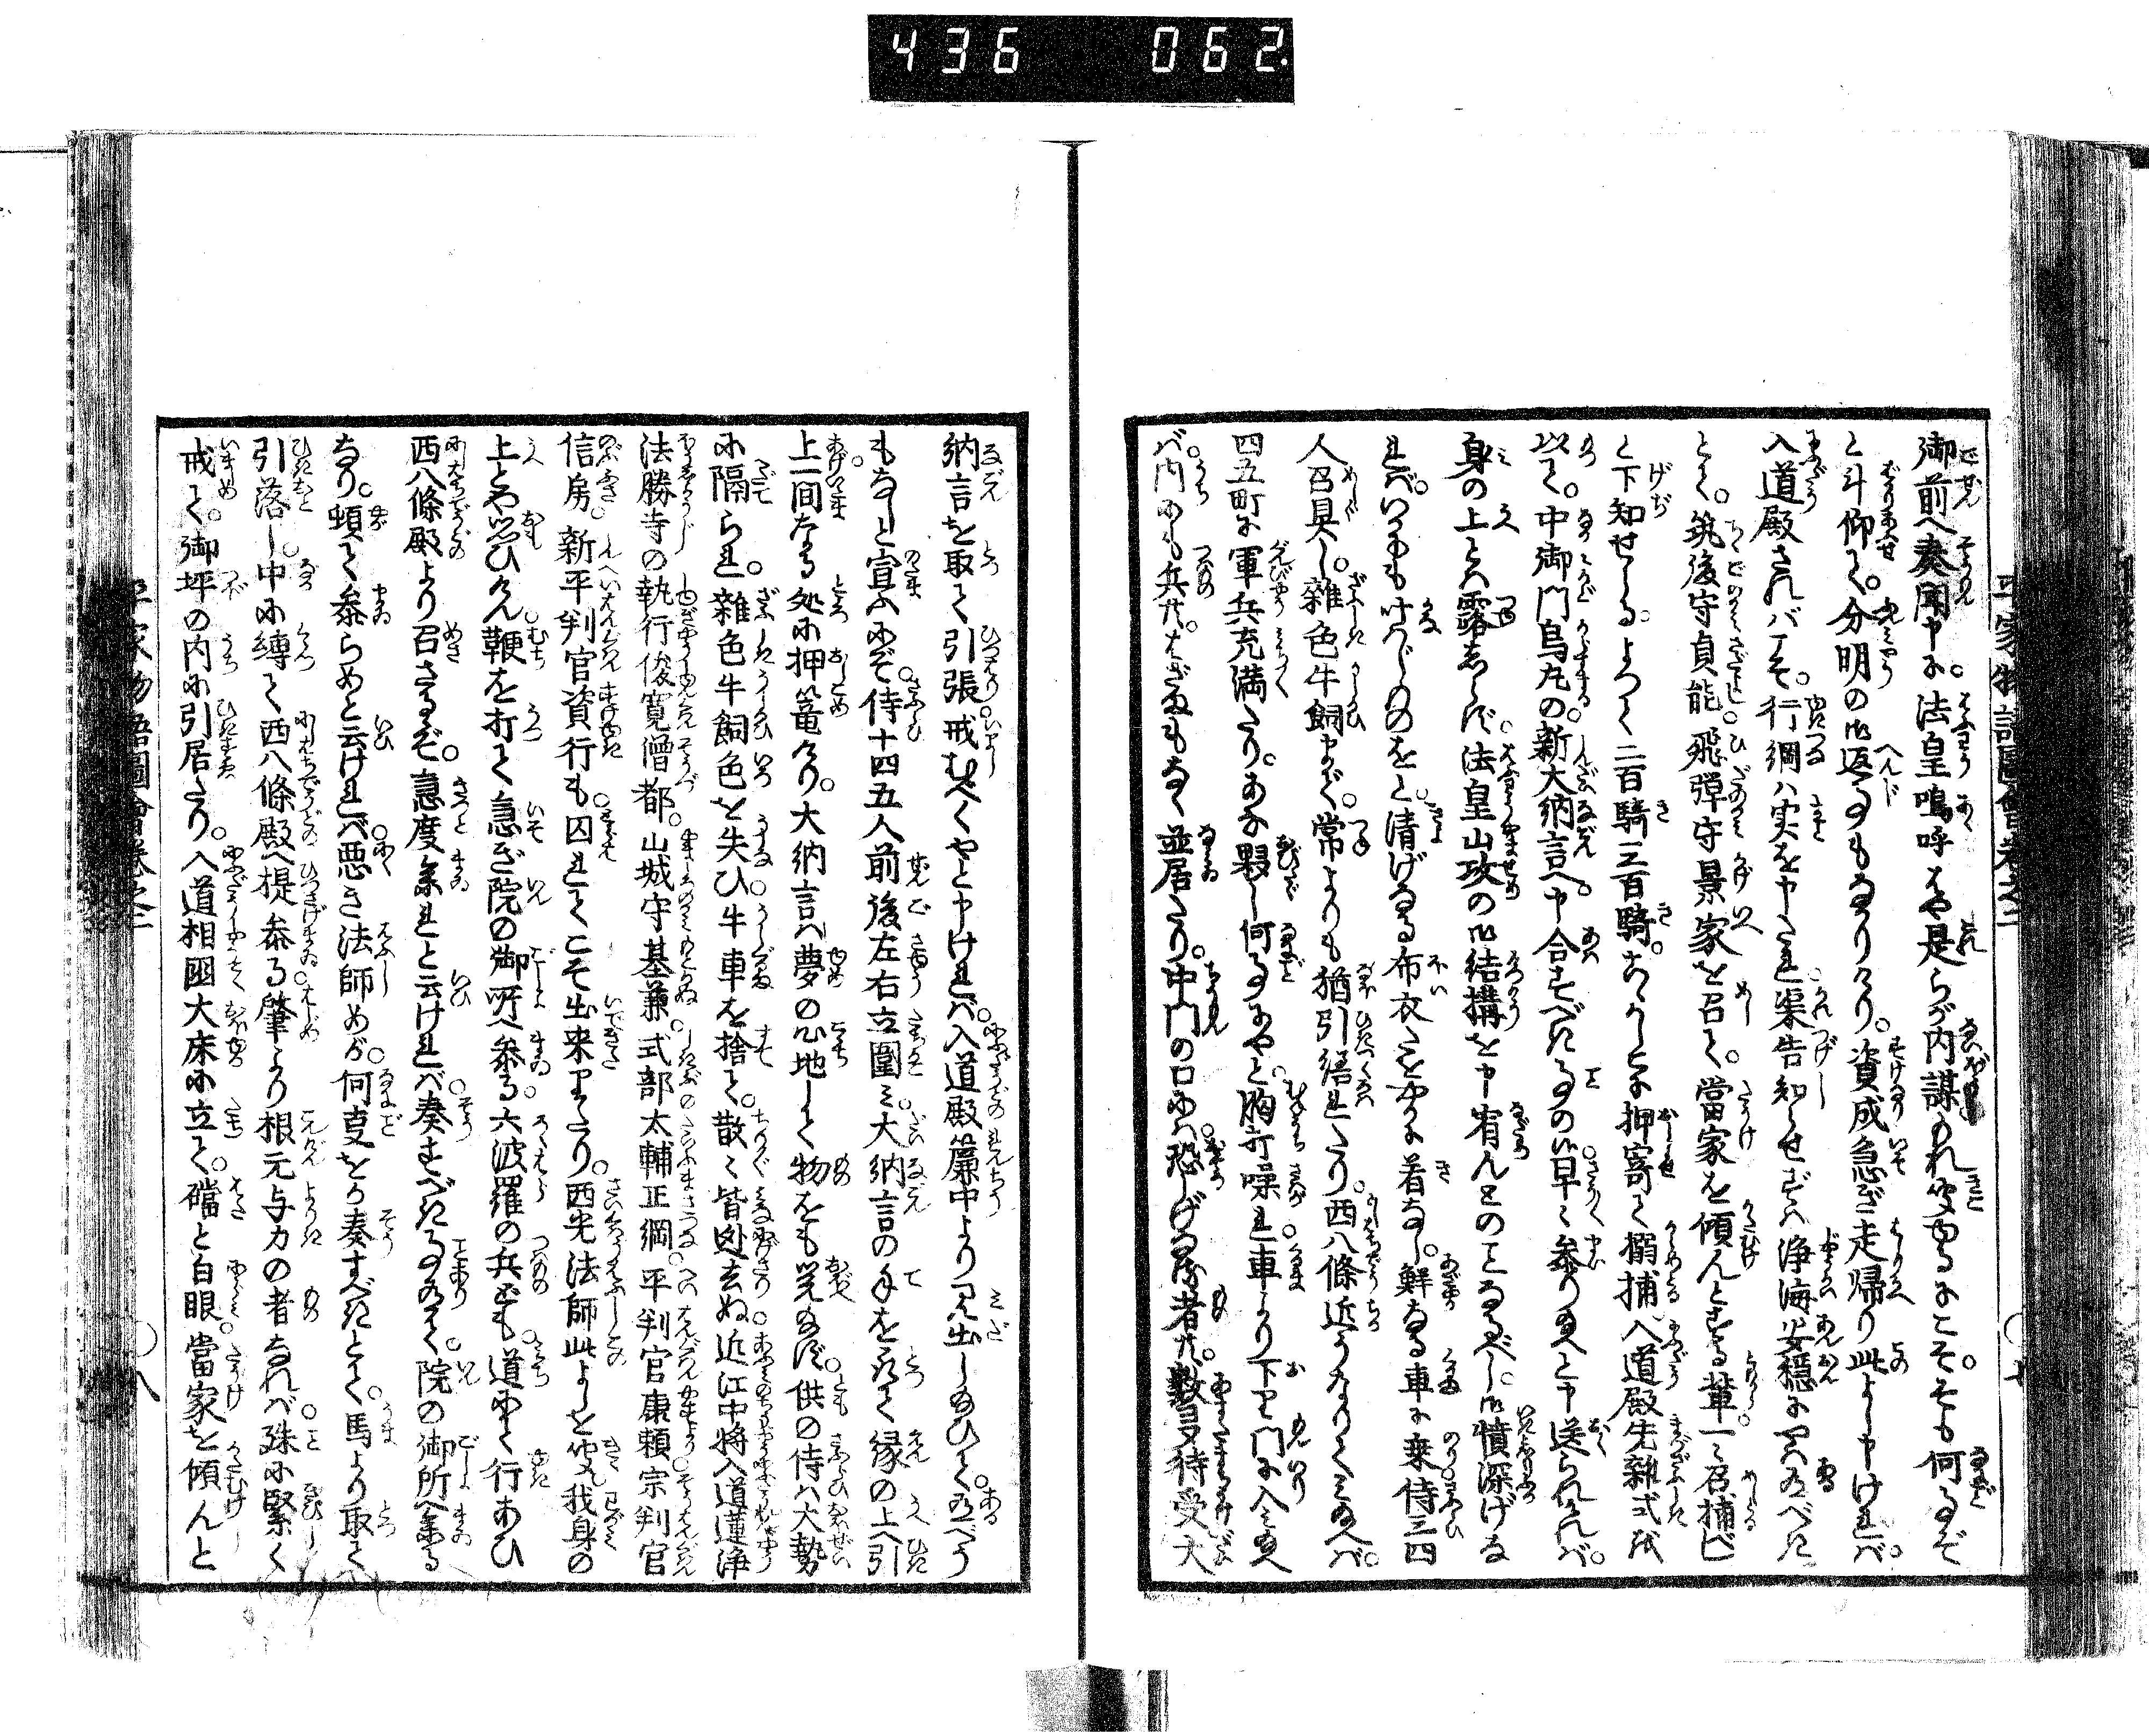 436 062.
平家物語圖會巻之二
御前へ奏聞申に。法皇嗚呼はや是らが内謀のれ聞ゆるにこそ。そも何事ぞ
と斗仰て。分明の御返事もなかりけり。資成急ぎ走帰り此よし申ければ。
入道殿さればこそ。行綱ハ実を申たれ渠告知らせずハ浄海安穏にや有べき
とて。筑後守貞能飛弾守景家を召て。當家を傾んとする輩一々召捕べし
と下知せらる。よつて二百騎三百騎。あそこ爰に押寄て搦捕入道殿先雑式を
以て。中御門烏丸の新大納言へ。申合すべき事の候早々参り給へと申送られければ。
身の上とハ露しらず。法皇山攻の御結構を申宥んとのことなるべし。御憤深げな
れば。いかにも叶ハじものをと。清げなる布衣たをやかに着なし。鮮なる車に乗侍三四
人召具し。雑色牛飼まで。常よりも猶引繕れたり。西八條近うなりてミ給へば。
四五町に軍兵充満たり。あな夥し何事にやと。胸打噪れ車より下り門に入ミ給へ
ば。内にも兵共。はざまもなく並居たり。中門の口にハ恐しげなる者共。数多待受大
納言を取て引張。戒むべくやと申ければ。入道殿簾中より見出し給ひて。有べう
もなしと宣ふにぞ。侍十四五人前後左右立圍ミ。大納言の手を取て縁の上へ引
上。一間なる処に押篭けり。大納言ハ夢の心地して物をも覚給ず。供の侍ハ大勢
に隔られ。雑色牛飼色を失ひ牛車を捨て。散々皆迯去ぬ近江中将入道蓮浄
法勝寺の執行俊寛僧都。山城守基兼。式部太輔正綱。平判官康頼宗判官
信房。新平判官資行も。囚れてこそ出来りけり。西光法師此よしを聞我身の
上とや思ひけん。鞭を打て急ぎ院の御所へ参る。六波羅の兵ども。道にて行あひ
西八條殿より召さるゝぞ。急度参れと云ければ。奏すべき事有て。院の御所へ参る
なり。頓て参らめと云ければ。悪き法師めが。何事をか奏すべきとて。馬より取て
引落し。中に縛て西八條殿へ提参る肇より根元与力の者なれば。殊に緊く
戒て。御坪の内に引居たり。入道相國大床に立て。礑と白眼。當家を傾んと
平家物語圖會巻之二
八